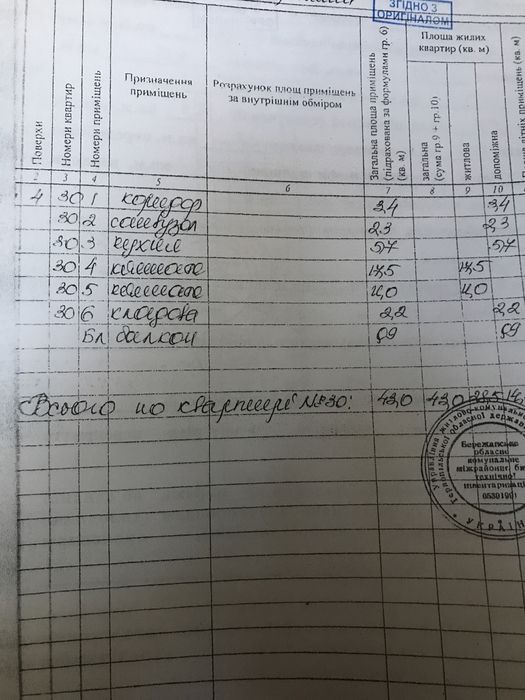 ЗГІДНО З
ОРИГІНАЛОМ
Поверхи
Номери квартир
Номери приміщень
Призначення
приміщень
Розрахунок площ приміщень
за внутрішнім обміром
Загальна площа приміщень
(підрахована за формулами гр. 6)
(кв. м)
Площа жилих
квартир (кв. м)
загальна
(сума гр. 9 + гр. 10)
житлова
допоміжна
літніх приміщень (кв. м)
2 3 4 5 6 7 8 9 10
4 30 1 коридор 3,4 3,4
30 2 санвузол 2,3 2,3
30 3 кухня 5,7 5,7
30 4 кімната 17,5 17,5
30 5 кімната 11,0 11,0
30 6 кладова 2,2 2,2
Бл балкон 0,9 0,9
Всього по квартирі №30: 43,0 43,0
Управління житлово-комунального
Тернопільської обласної державної
Бережанське
обласне
комунальне
міжрайонне
технічної
інвентаризації
УКРАЇН